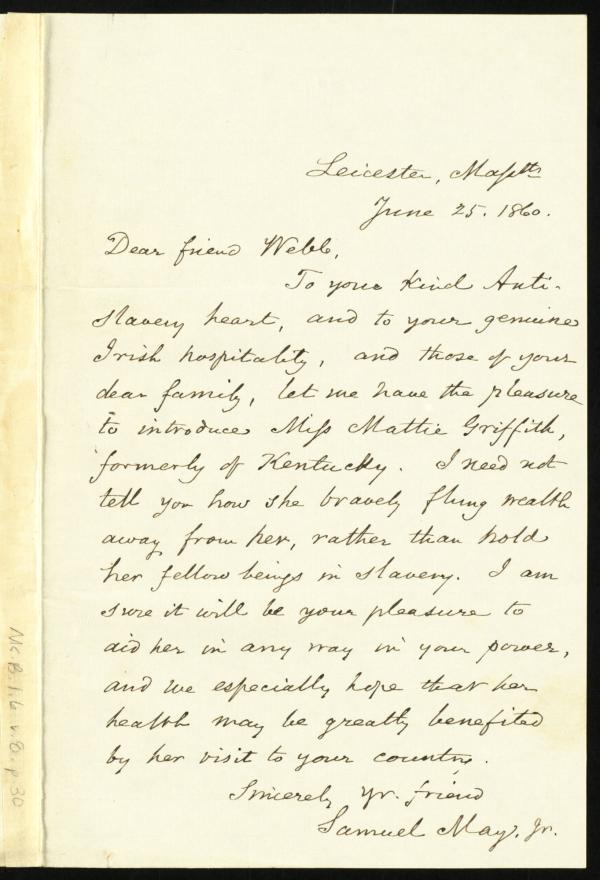 Leicester, Massts
June 25. 1860.
Dear friend Webb,
To your kind Anti-
slavery heart, and to your genuine
Irish hospitality, and those of your
dear family, let me have the pleasure
to introduce Miss Mattie Griffith,
formerly of Kentucky. I need not
tell you how she bravely flung wealth
away from her, rather than hold
her fellow beings in slavery. I am
sure it will be your pleasure to
aid her in any way in your power,
and we especially hope that her
health may be greatly benefited
by her visit to your country.
Sincerely yr. friend
Samuel May, Jr.
Ms B.1.6 v.8, p.30